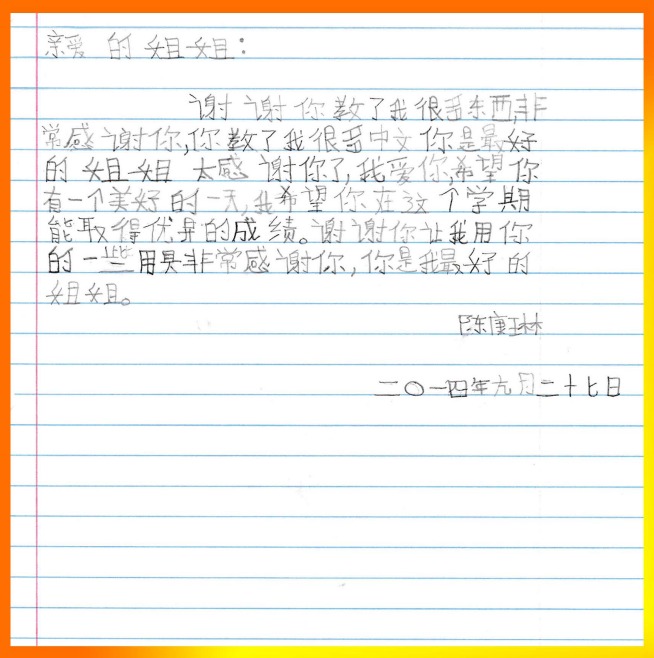 亲爱 的 姐姐：
谢谢你教了我很多东西,非
常感谢你,你教了我很多中文你是最好
的姐姐 太感谢你了,我爱你,希望你
有一个美好的一天,我希望你在这个学期
能取得优异的成绩。谢谢你让我用你
的一些用具非常感谢你,你是我最好的
姐姐。
陈康琳
二〇一四年九月二十七日